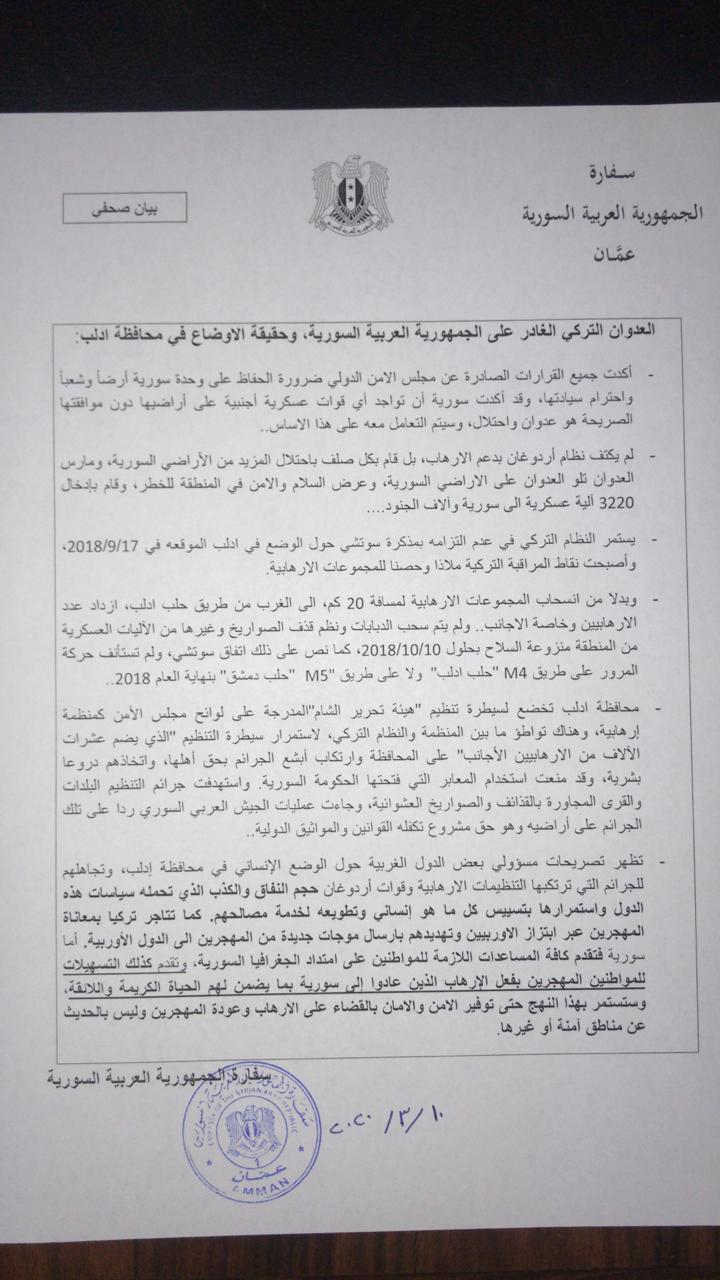 سـفـارة
الجمهورية العربية السورية
عمَّـان
بيان صحفي
العدوان التركي الغادر على الجمهورية العربية السورية، وحقيقة الاوضاع في محافظة ادلب:
- أكدت جميع القرارات الصادرة عن مجلس الامن الدولي ضرورة الحفاظ على وحدة سورية أرضاً وشعباً
واحترام سيادتها، وقد أكدت سورية أن تواجد أي قوات عسكرية أجنبية على أراضيها دون موافقتها
الصريحة هو عدوان واحتلال، وسيتم التعامل معه على هذا الاساس..
- لم يكتف نظام أردوغان بدعم الارهاب، بل قام بكل صلف باحتلال المزيد من الأراضي السورية، ومارس
العدوان تلو العدوان على الاراضي السورية، وعرض السلام والامن في المنطقة للخطر، وقام بإدخال
3220 آلية عسكرية الى سورية وآلاف الجنود....
- يستمر النظام التركي في عدم التزامه بمذكرة سوتشي حول الوضع في ادلب الموقعه في 2018/9/17،
وأصبحت نقاط المراقبة التركية ملاذا وحصنا للمجموعات الارهابية.
- وبدلا من انسحاب المجموعات الارهابية لمسافة 20 كم، الى الغرب من طريق حلب ادلب، ازداد عدد
الارهابيين وخاصة الاجانب.. ولم يتم سحب الدبابات ونظم قذف الصواريخ وغيرها من الآليات العسكرية
من المنطقة منزوعة السلاح بحلول 2018/10/10، كما نص على ذلك اتفاق سوتشي، ولم تستأنف حركة
المرور على طريق M4 "حلب ادلب" ولا على طريق "M5 "حلب دمشق" بنهاية العام 2018..
- محافظة ادلب تخضع لسيطرة تنظيم "هيئة تحرير الشام"المدرجة على لوائح مجلس الأمن كمنظمة
إرهابية، وهناك تواطؤ ما بين المنظمة والنظام التركي، لاستمرار سيطرة التنظيم "الذي يضم عشرات
الآلاف من الارهابيين الأجانب" على المحافظة وارتكاب أبشع الجرائم بحق أهلها، واتخاذهم دروعا
بشرية، وقد منعت استخدام المعابر التي فتحتها الحكومة السورية. واستهدفت جرائم التنظيم البلدات
والقرى المجاورة بالقذائف والصواريخ العشوائية، وجاءت عمليات الجيش العربي السوري ردا على تلك
الجرائم على أراضيه وهو حق مشروع تكفله القوانين والمواثيق الدولية..
- تظهر تصريحات مسؤولي بعض الدول الغربية حول الوضع الإنساني في محافظة إدلب، وتجاهلهم
للجرائم التي ترتكبها التنظيمات الارهابية وقوات أردوغان حجم النفاق والكذب الذي تحمله سياسات هذه
الدول واستمرارها بتسييس كل ما هو إنساني وتطويعه لخدمة مصالحهم. كما تتاجر تركيا بمعاناة
المهجرين عبر ابتزاز الاوربيين وتهديدهم بارسال موجات جديدة من المهجرين الى الدول الأوربية. أما
سورية فتقدم كافة المساعدات اللازمة للمواطنين على امتداد الجغرافيا السورية، وتقدم كذلك التسهيلات
للمواطنين المهجرين بفعل الإرهاب الذين عادوا إلى سورية بما يضمن لهم الحياة الكريمة واللائقة،
وستستمر بهذا النهج حتى توفير الامن والامان بالقضاء على الارهاب وعودة المهجرين وليس بالحديث
عن مناطق آمنة أو غيرها.
سفارة الجمهورية العربية السورية
٢٠٢٠/٣/١٠
EMBASSY OF THE SYRIAN ARAB REPUBLIC
1
عمان
AMMAN